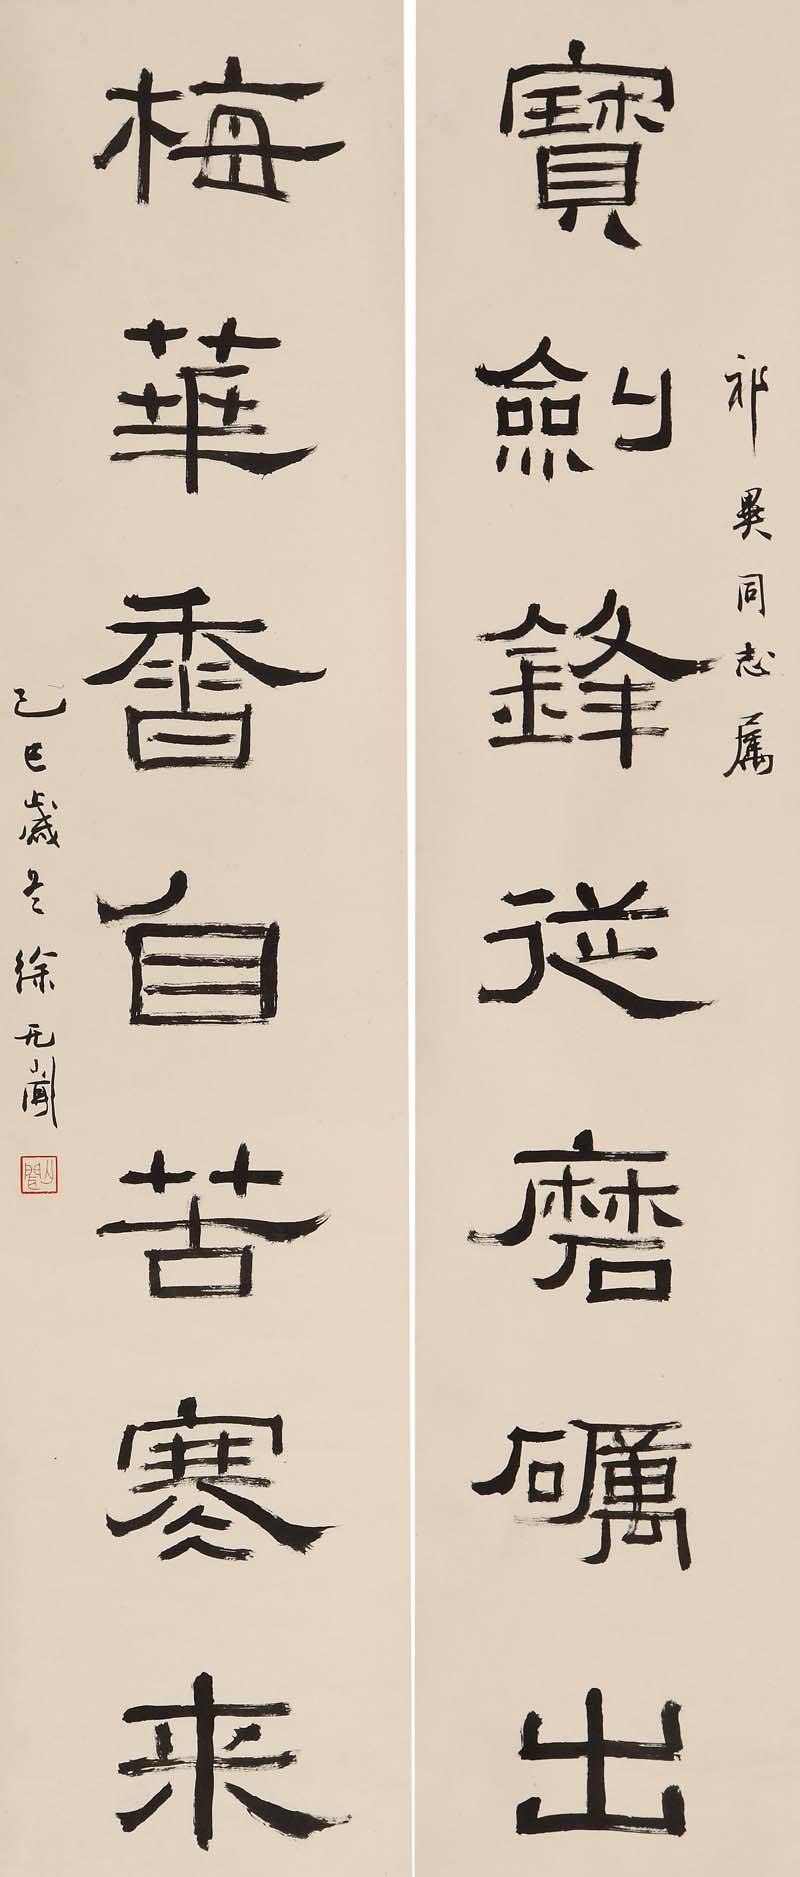 寶劍鋒從磨礪出
祁異同志属
梅華香自苦寒来
己巳歲冬徐无聞